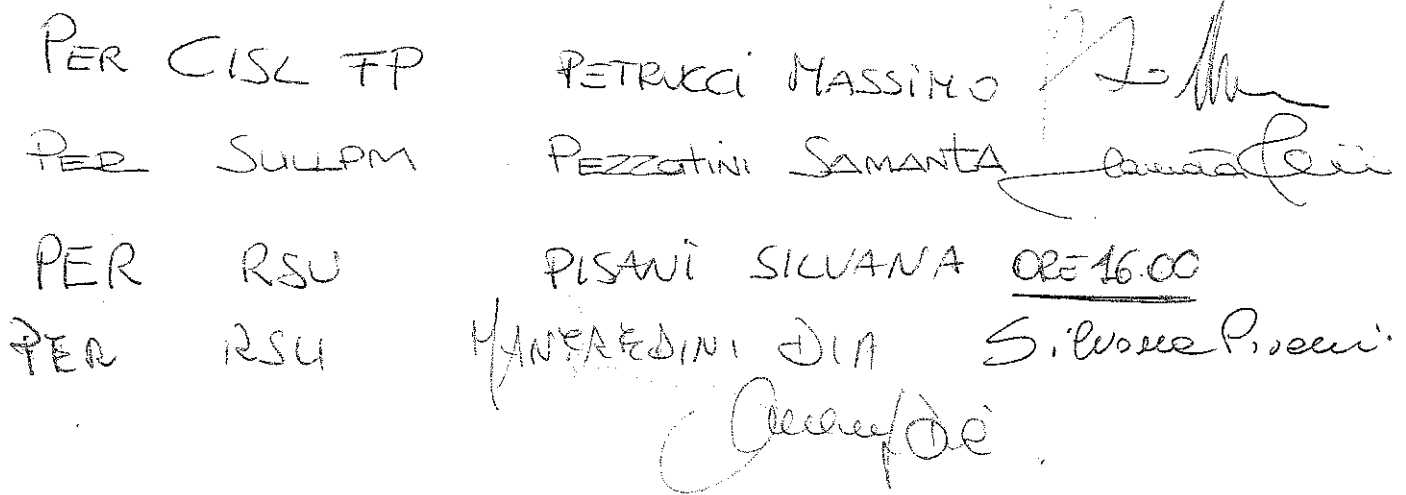 PER CISL FP PETRUCCI MASSIMO
PER SULPM PEZZATINI SAMANTA
PER RSU PISANI SILVANA ORE 16.00
PER RSU MANFREDINI DIA Silvana Pisani